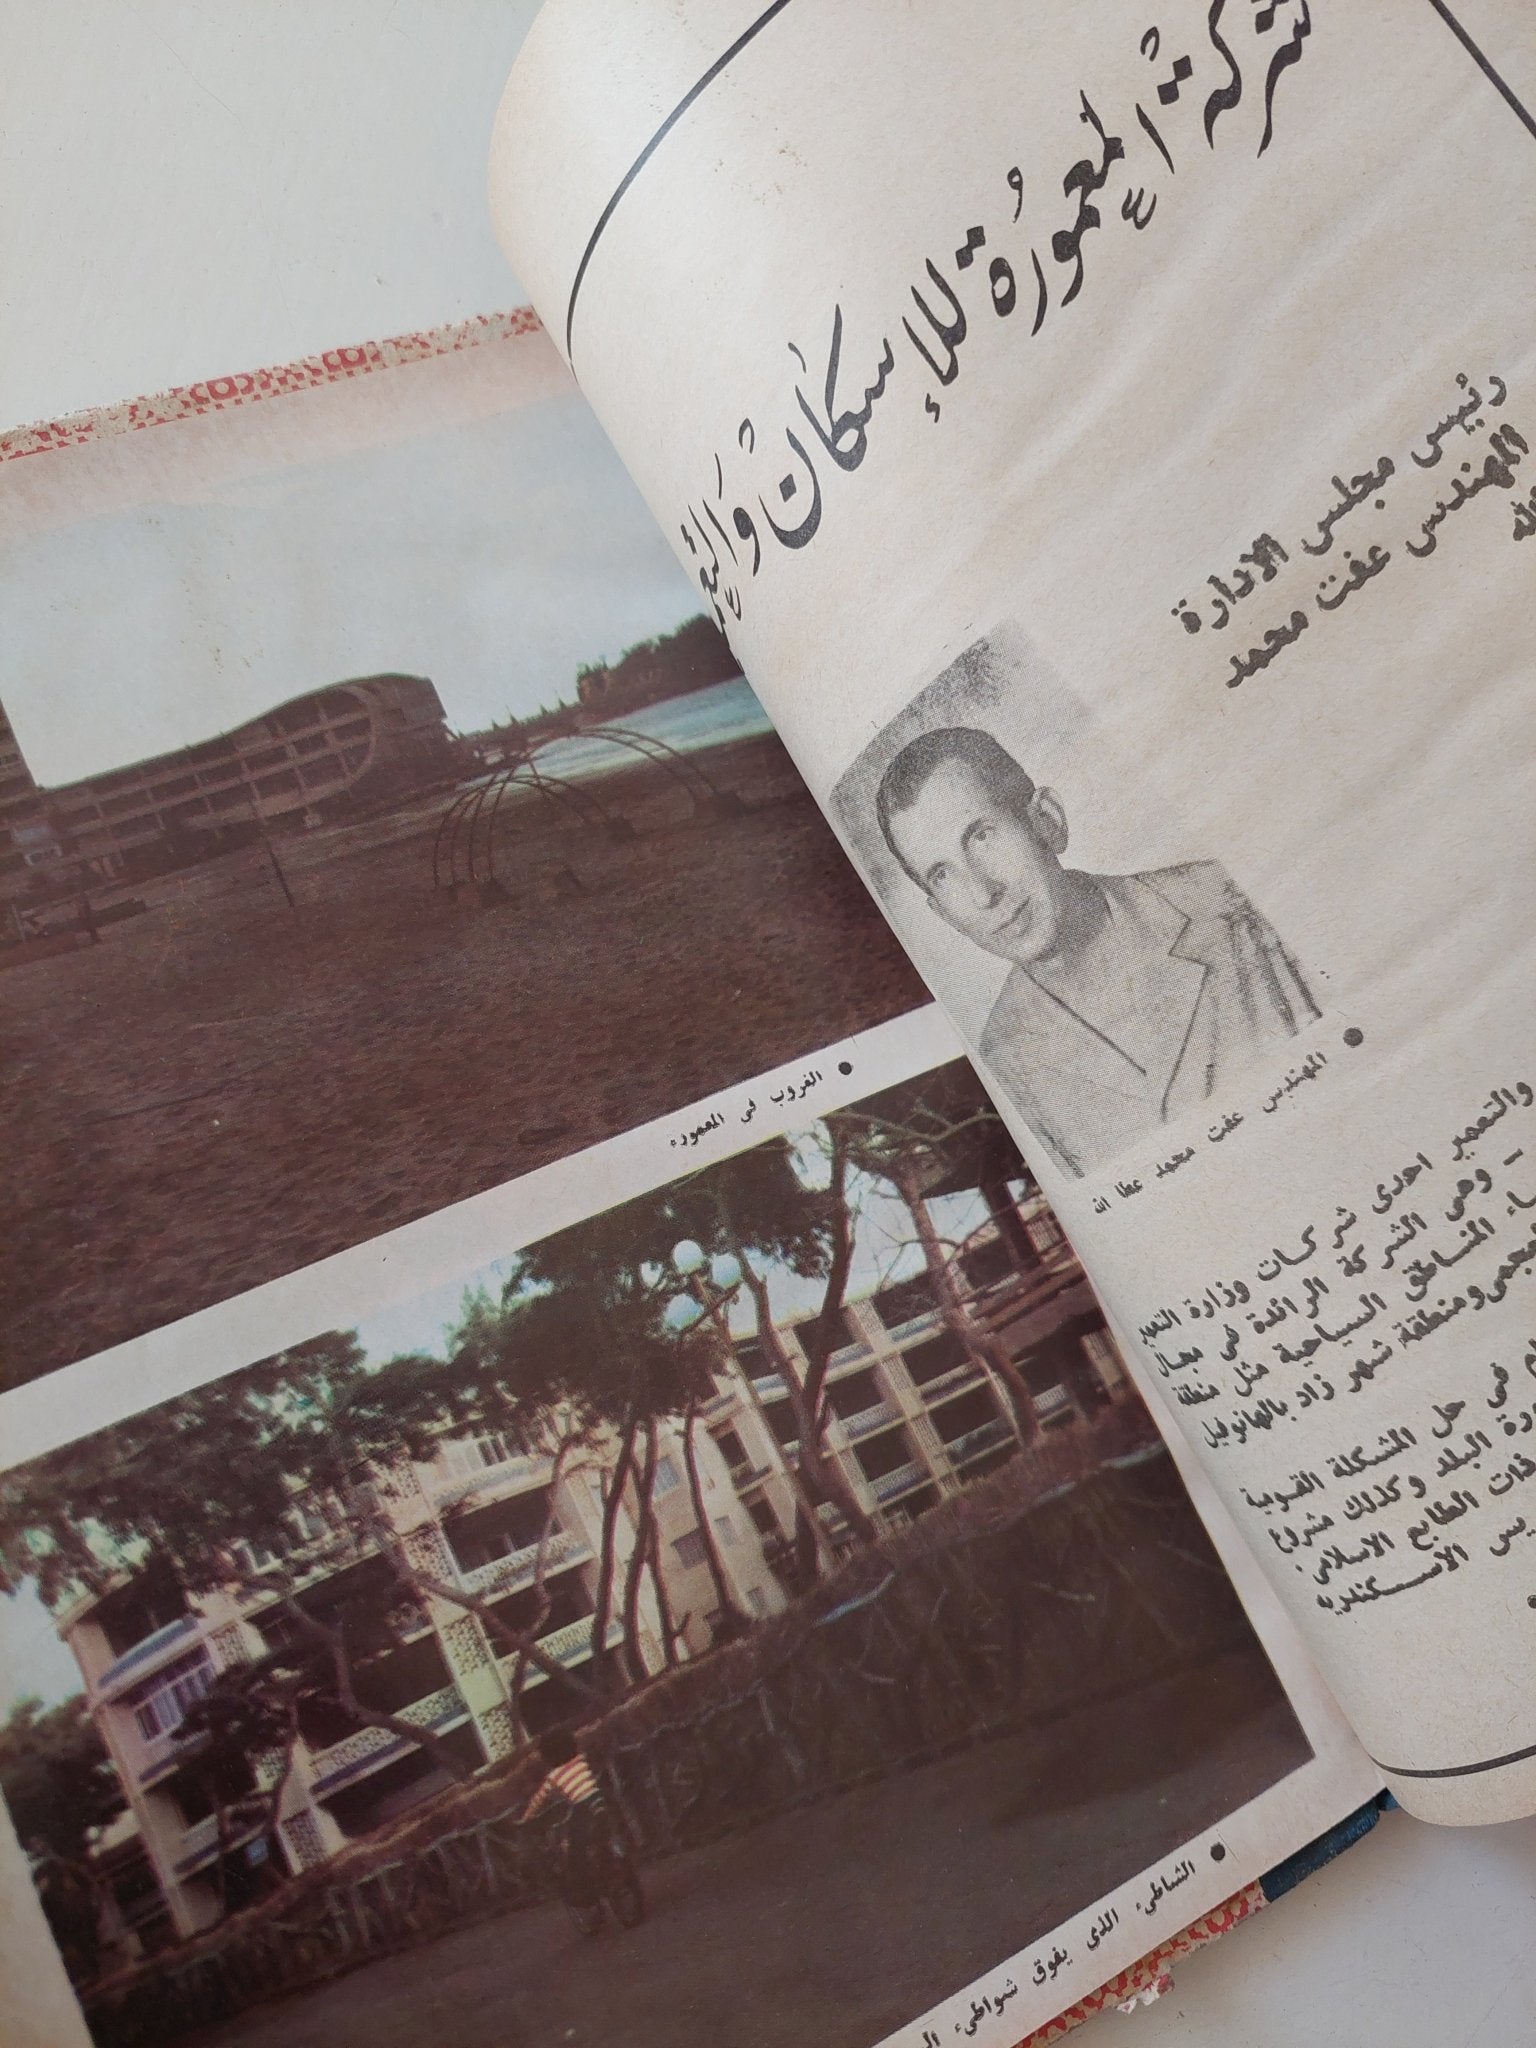 شركة المعمورة للإسكان والتعمير
رئيس مجلس الادارة
المهندس عفت محمد
● المهندس عفت محمد عطا الله
والتعمير احدى شركات وزارة التعمير
- وهى الشركة الرائدة فى مجال
المناطق السياحية مثل منطقة
ومنطقة شهر زاد بالهانوفيل
فى حل المشكلة القومية
البلد وكذلك مشروع
ذات الطابع الاسلامى
الاسكندرية
● الغروب فى المعمورة
● الشاطىء الذى يفوق شواطىء